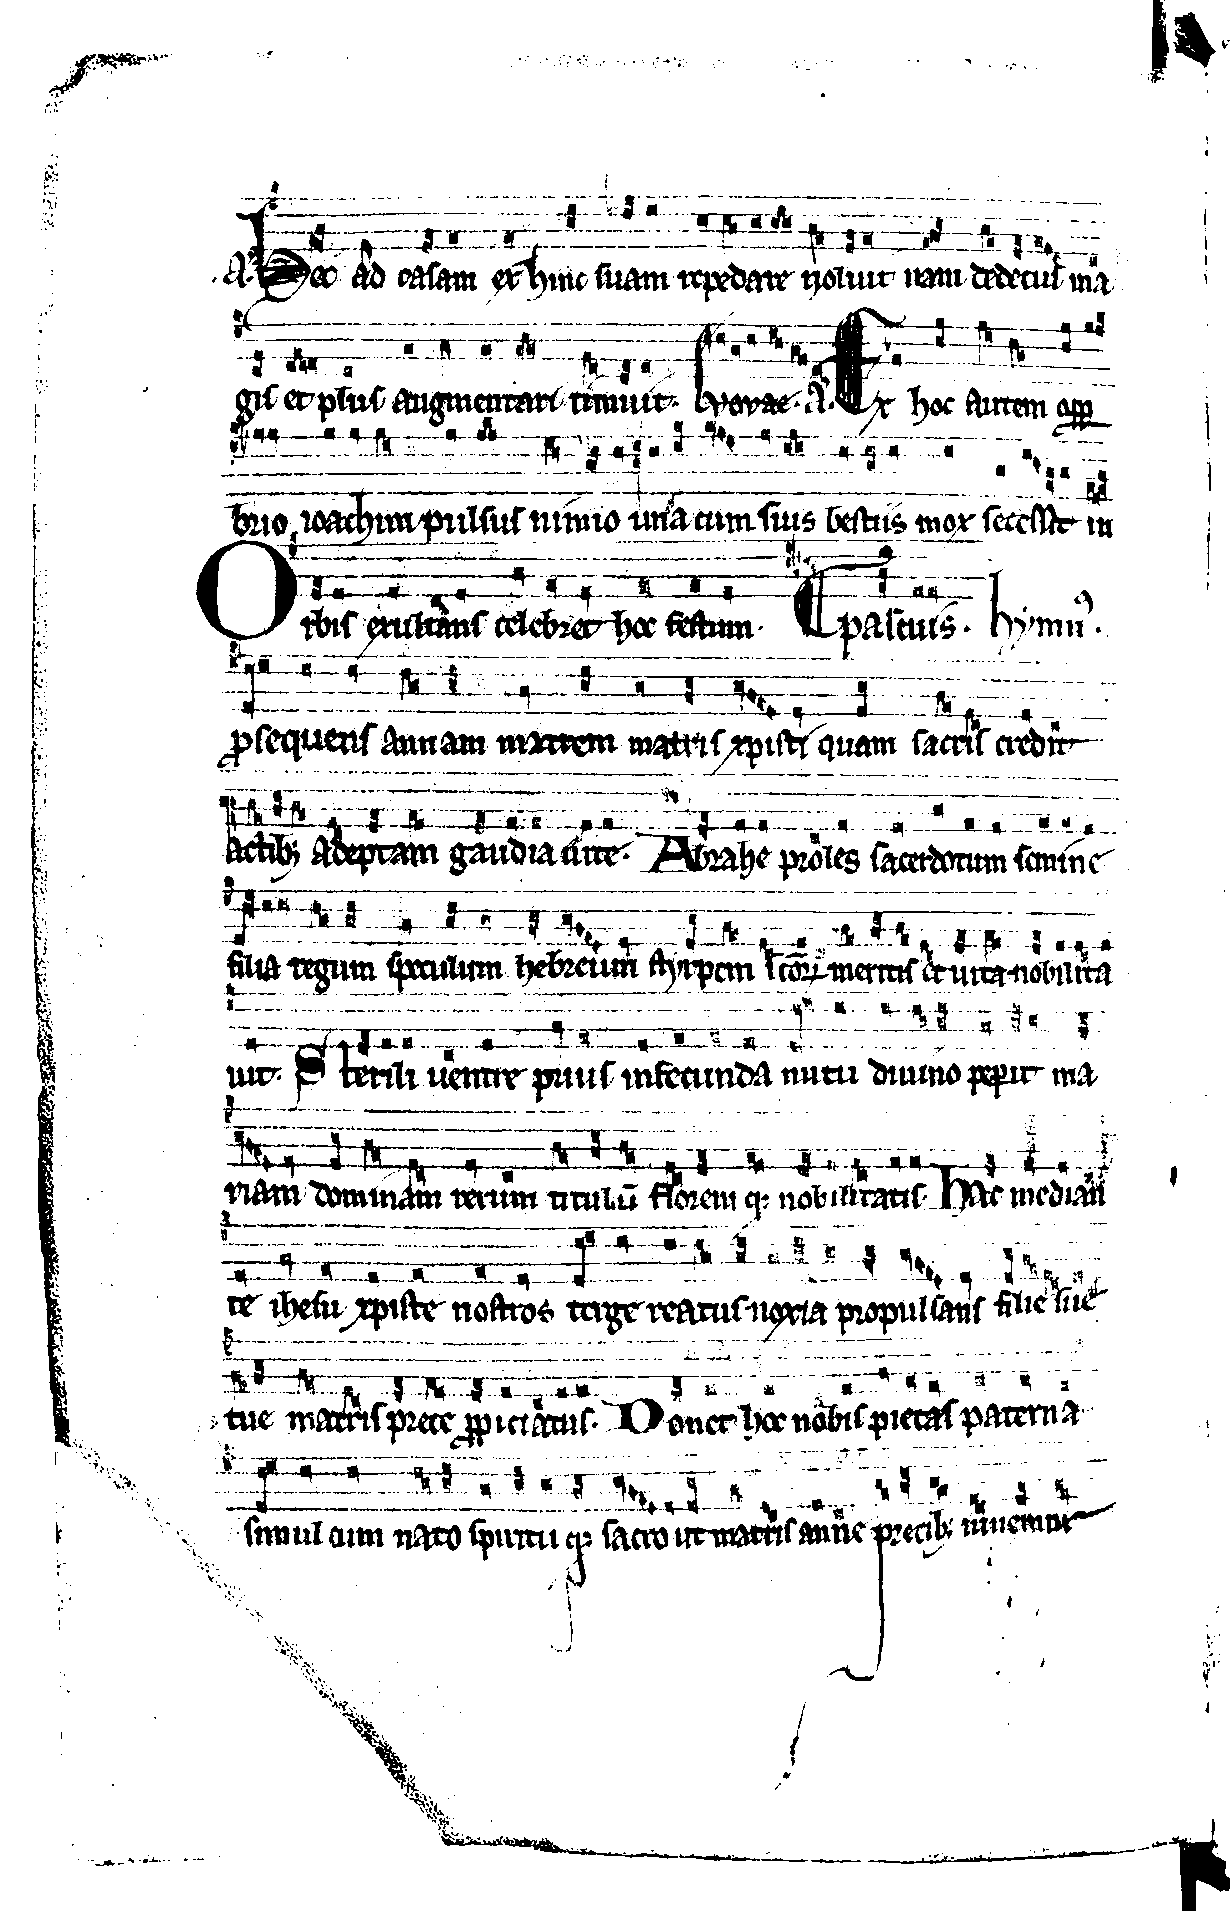 A. Hec ad casam ex hinc suam repedare noluit nam dedecus ma
gis et plus augmentari timuit. Evovae. A. Ex hoc autem opp
brio ioachim pulsus nimio una cum suis bestiis mox secessit in
Orbis exultans celebret hoc festum. pascuis. hymus.
psequens annam matrem matris xpisti quam sacris credit
actib; adeptam gaudia vite. Abrahe proles sacerdotum semine
filia regum speculum hebreum styrpem meritis et vita nobilita
vit. Sterili ventre prius infecunda nutu divino peperit ma
riam dominam rerum titulu florem q; nobilitatis. Hac median
te ihesu xpiste nostros terge reatus noxia propulsans filie sue
tue matris prece ppiciatus. Donet hoc nobis pietas paterna
simul cum nato spiritu q; sacro ut matris anne precib; iuuemur